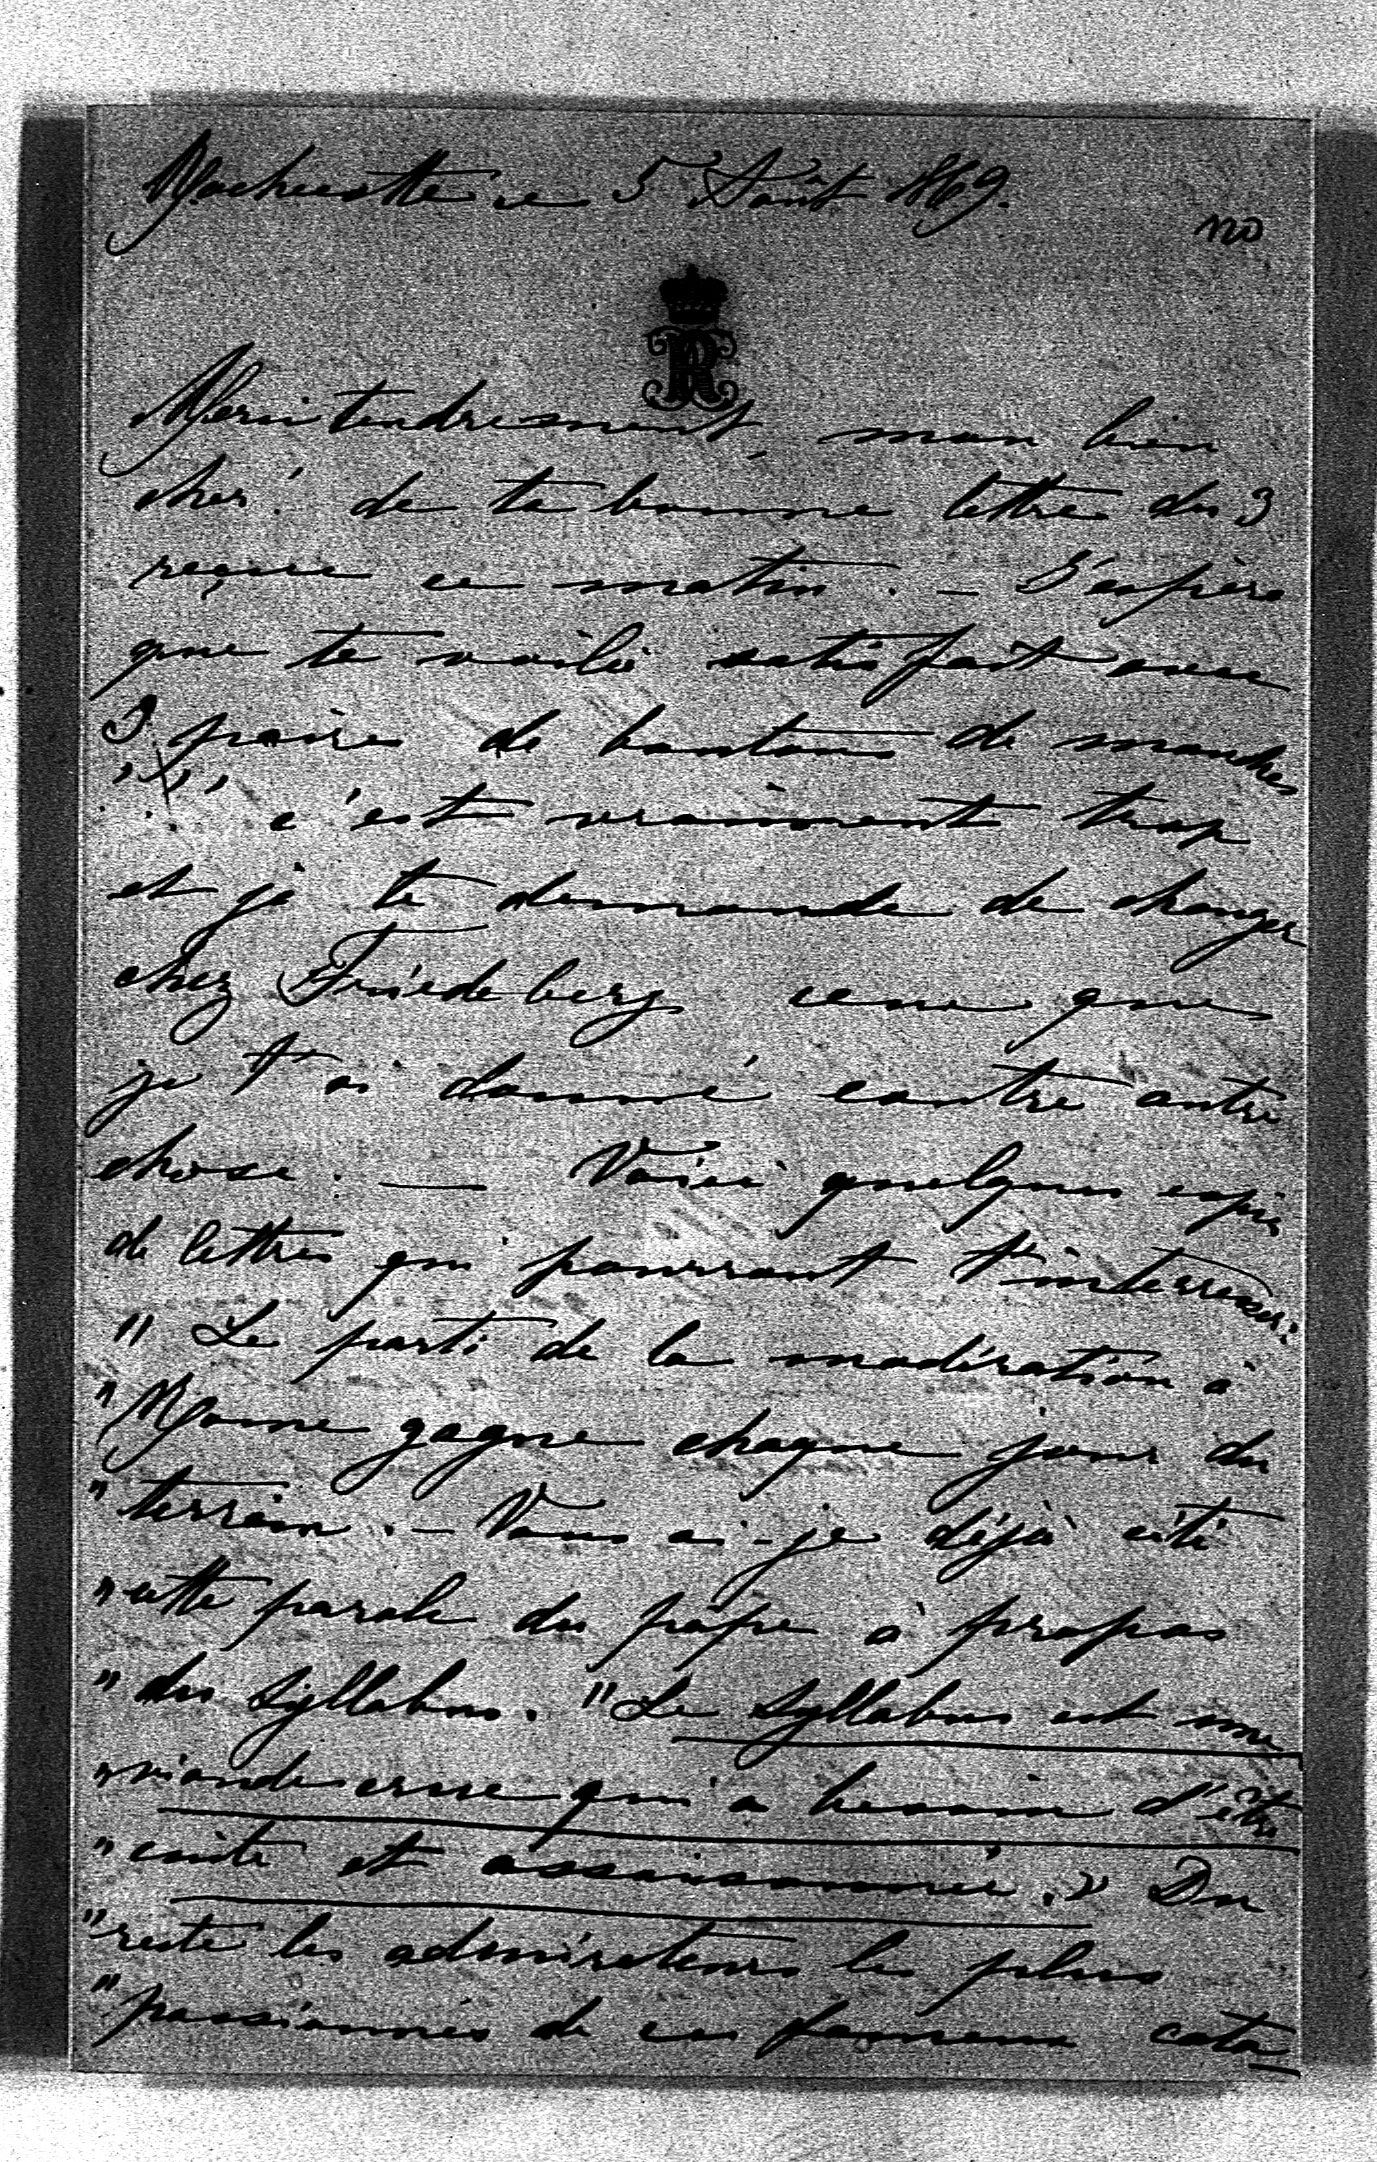 Machuette ce 5 Août 1869.
120
Merci tendrement, mon bien
cher! de ta bonne lettre du 3
reçue ce matin. — J'espère
que te voilà satisfait avec
3 paires de boutons de manches
c'est vraiment trop
et je te demande de changer
chez Friedeberg ceux que
je t'ai donné contre autre
chose. — Voici quelques copies
de lettres qui pourront t'interresser:
" Le parti de la modération à
" Rome gagne chaque jour du
" terrain. — Vous ai-je déjà cité
" cette parole du pape à propos
" du Syllabus. " Le Syllabus est une
" viande crue qui a besoin d'être
" cuite et assaisonnée. » Du
" reste les admirateurs les plus
" passionnés de ces fameux cata-